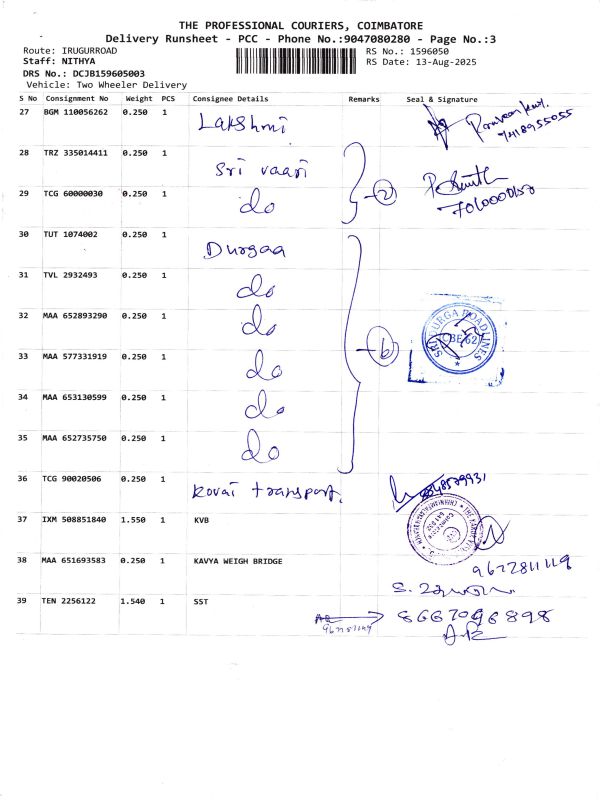 THE PROFESSIONAL COURIERS, COIMBATORE
Delivery Runsheet - PCC - Phone No.:9047080280 - Page No.:3
Route: IRUGURROAD
RS No.: 1596050
Staff: NITHYA
RS Date: 13-Aug-2025
DRS No.: DCJB159605003
Vehicle: Two Wheeler Delivery
S No Consignment No Weight PCS Consignee Details Remarks Seal & Signature
27 BGM 110056262 0.250 1 Lakshmi
28 TRZ 335014411 0.250 1 Sri vaari
29 TCG 60000030 0.250 1 do 2
30 TUT 1074002 0.250 1 Durgaa
31 TVL 2932493 0.250 1 do
32 MAA 652893290 0.250 1 do
SRI DURGA ROADLINES CBE 62
33 MAA 577331919 0.250 1 do 6
34 MAA 653130599 0.250 1 do
35 MAA 652735750 0.250 1 do
36 TCG 90020506 0.250 1 kovai transport.
37 IXM 508851840 1.550 1 KVB
38 MAA 651693583 0.250 1 KAVYA WEIGH BRIDGE
9677811119
39 TEN 2256122 1.540 1 SST
8667096898